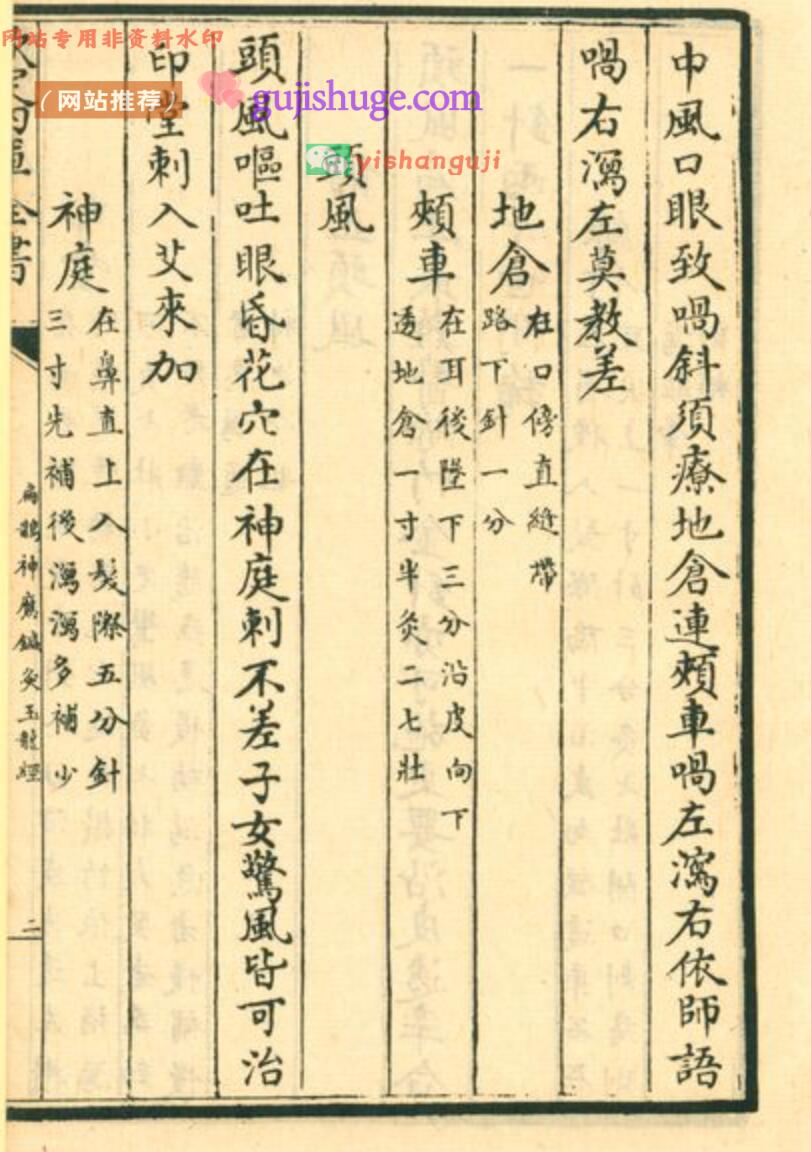 中風口眼致喎斜須療地倉連頰車喎左瀉右依師語
喎右瀉左莫教差
地倉 在口傍直縫帶
路下針一分
頰車 在耳後墜下三分沿皮向下
透地倉一寸半灸二七壯
頭風
頭風嘔吐眼昏花穴在神庭刺不差子女驚風皆可治
印堂刺入艾來加
神庭 在鼻直上入髮際五分針
三寸先補後瀉瀉多補少
全書
扁鵲神應鍼灸玉龍經
二
网站专用非资料水印
（网站推荐）
gujishuge.com
yishanguji